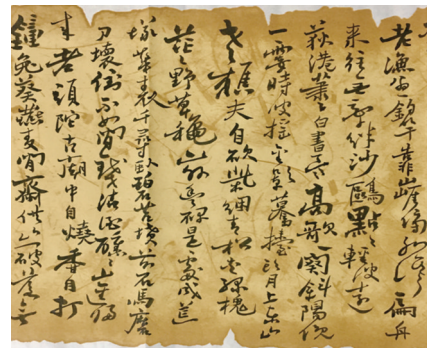 老漁翁一釣竿靠山崖傍水灣扁舟
來往無牽絆沙鷗點點輕波遠
荻港蕭蕭白晝寒高歌一曲斜陽晚
一霎時波搖金影驀擡頭月上東山
老樵夫自砍柴綑青松夾綠槐
茫茫野草穐山外豐碑是處成荒
塚華表千尋臥碧苔墳前石馬磨
刀壞倒不如閒錢沽酒醉醺醺山徑歸
來老頭陀古廟中自燒香自打
鐘兔葵燕麥閒齋供山破落無